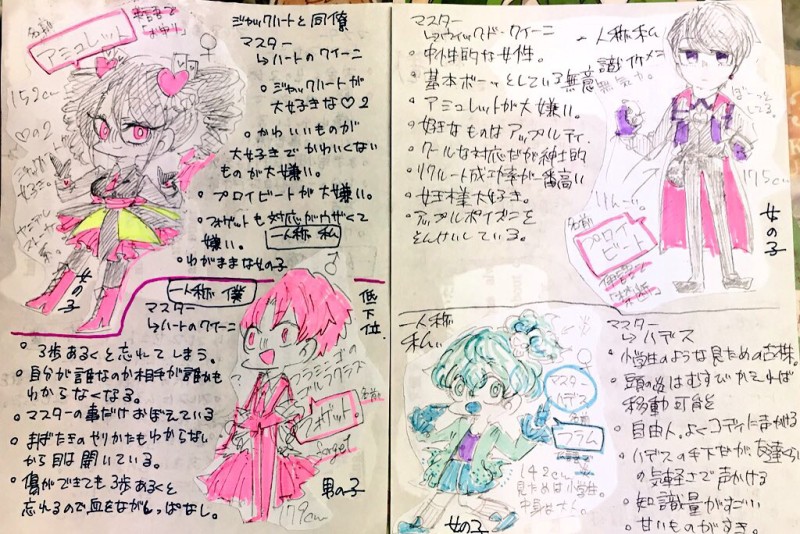 ジャックハートと同僚
名前
アミュレット
♀
マスター
↳ハートのクイーニ
152cm
・ジャックハートが
大好きな♡2
・かわいいものが
大好きでかわいくない
ものが大嫌い。
・プロイビートが大嫌い。
・フォゲットも対応がウザくて
嫌い。
・わがままな女の子
一人称 私
女の子
一人称 僕
♂
低下位
マスター
↳ハートのクイーニ
・3歩あるくと忘れてしまう。
・自分が誰なのか相手が誰かも
わからなくなる。
・マスターの事だけおぼえている
・まばたきのやりかたもわからない
から目は開いている。
・傷ができても3歩あるくと
忘れるので血をながしっぱなし。
名前
フォゲット
forget
男の子
179cm
マスター
↳ウィックド・クイーニ
一人称 私
・中性的な女性。
・基本ボーッとしている無意
識イケメン
無気力。
・アミュレットが大嫌い。
・好きなものはアップルティ
・クールな対応だが紳士的
・リクルート成功率が一番高い
・女王様大好き。
・アップルポイズニを
そんけいしている。
175cm
女の子
名前
プロイ
ビート
一人称
私
♀
マスター
↳ハデス
マスター
ハデス
名前
フラム
142cm
見ため小学生。
女の子
・小学生のような見ための古株。
・頭の炎はむすびかえれば
移動可能
・自由人。よくコディに声かける
・ハデスの手下ながら友達くらい
の気軽さで声かける
・知識量がすごい
・甘いものがすき。